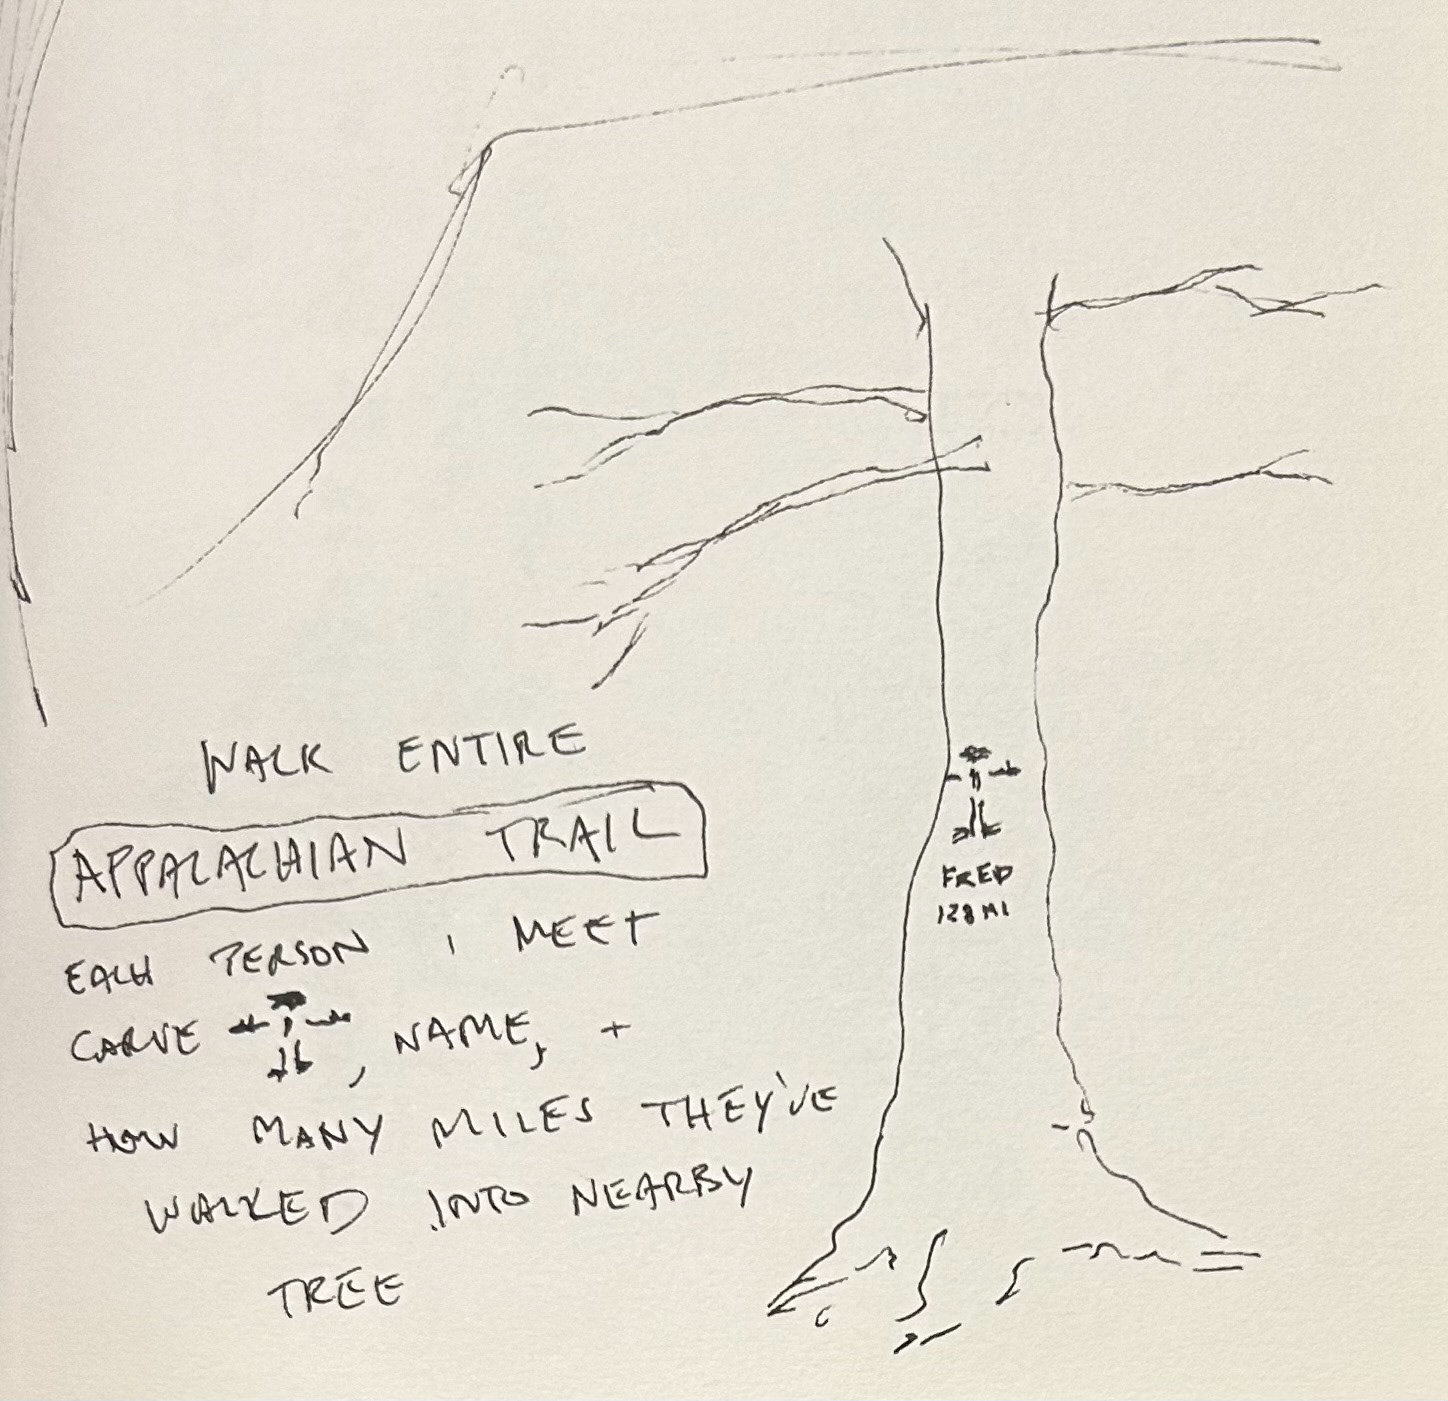 WALK ENTIRE
APPALACHIAN TRAIL
EACH PERSON I MEET
CARVE , NAME, +
HOW MANY MILES THEY'VE
WALKED INTO NEARBY
TREE
FRED
128 MI